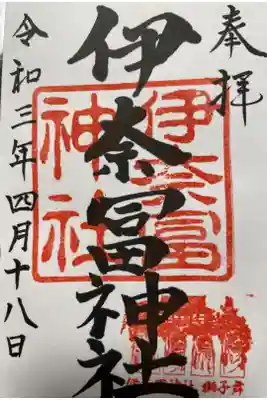 奉拝
伊奈冨神社
伊奈富
神社
獅子舞
令和三年四月十八日